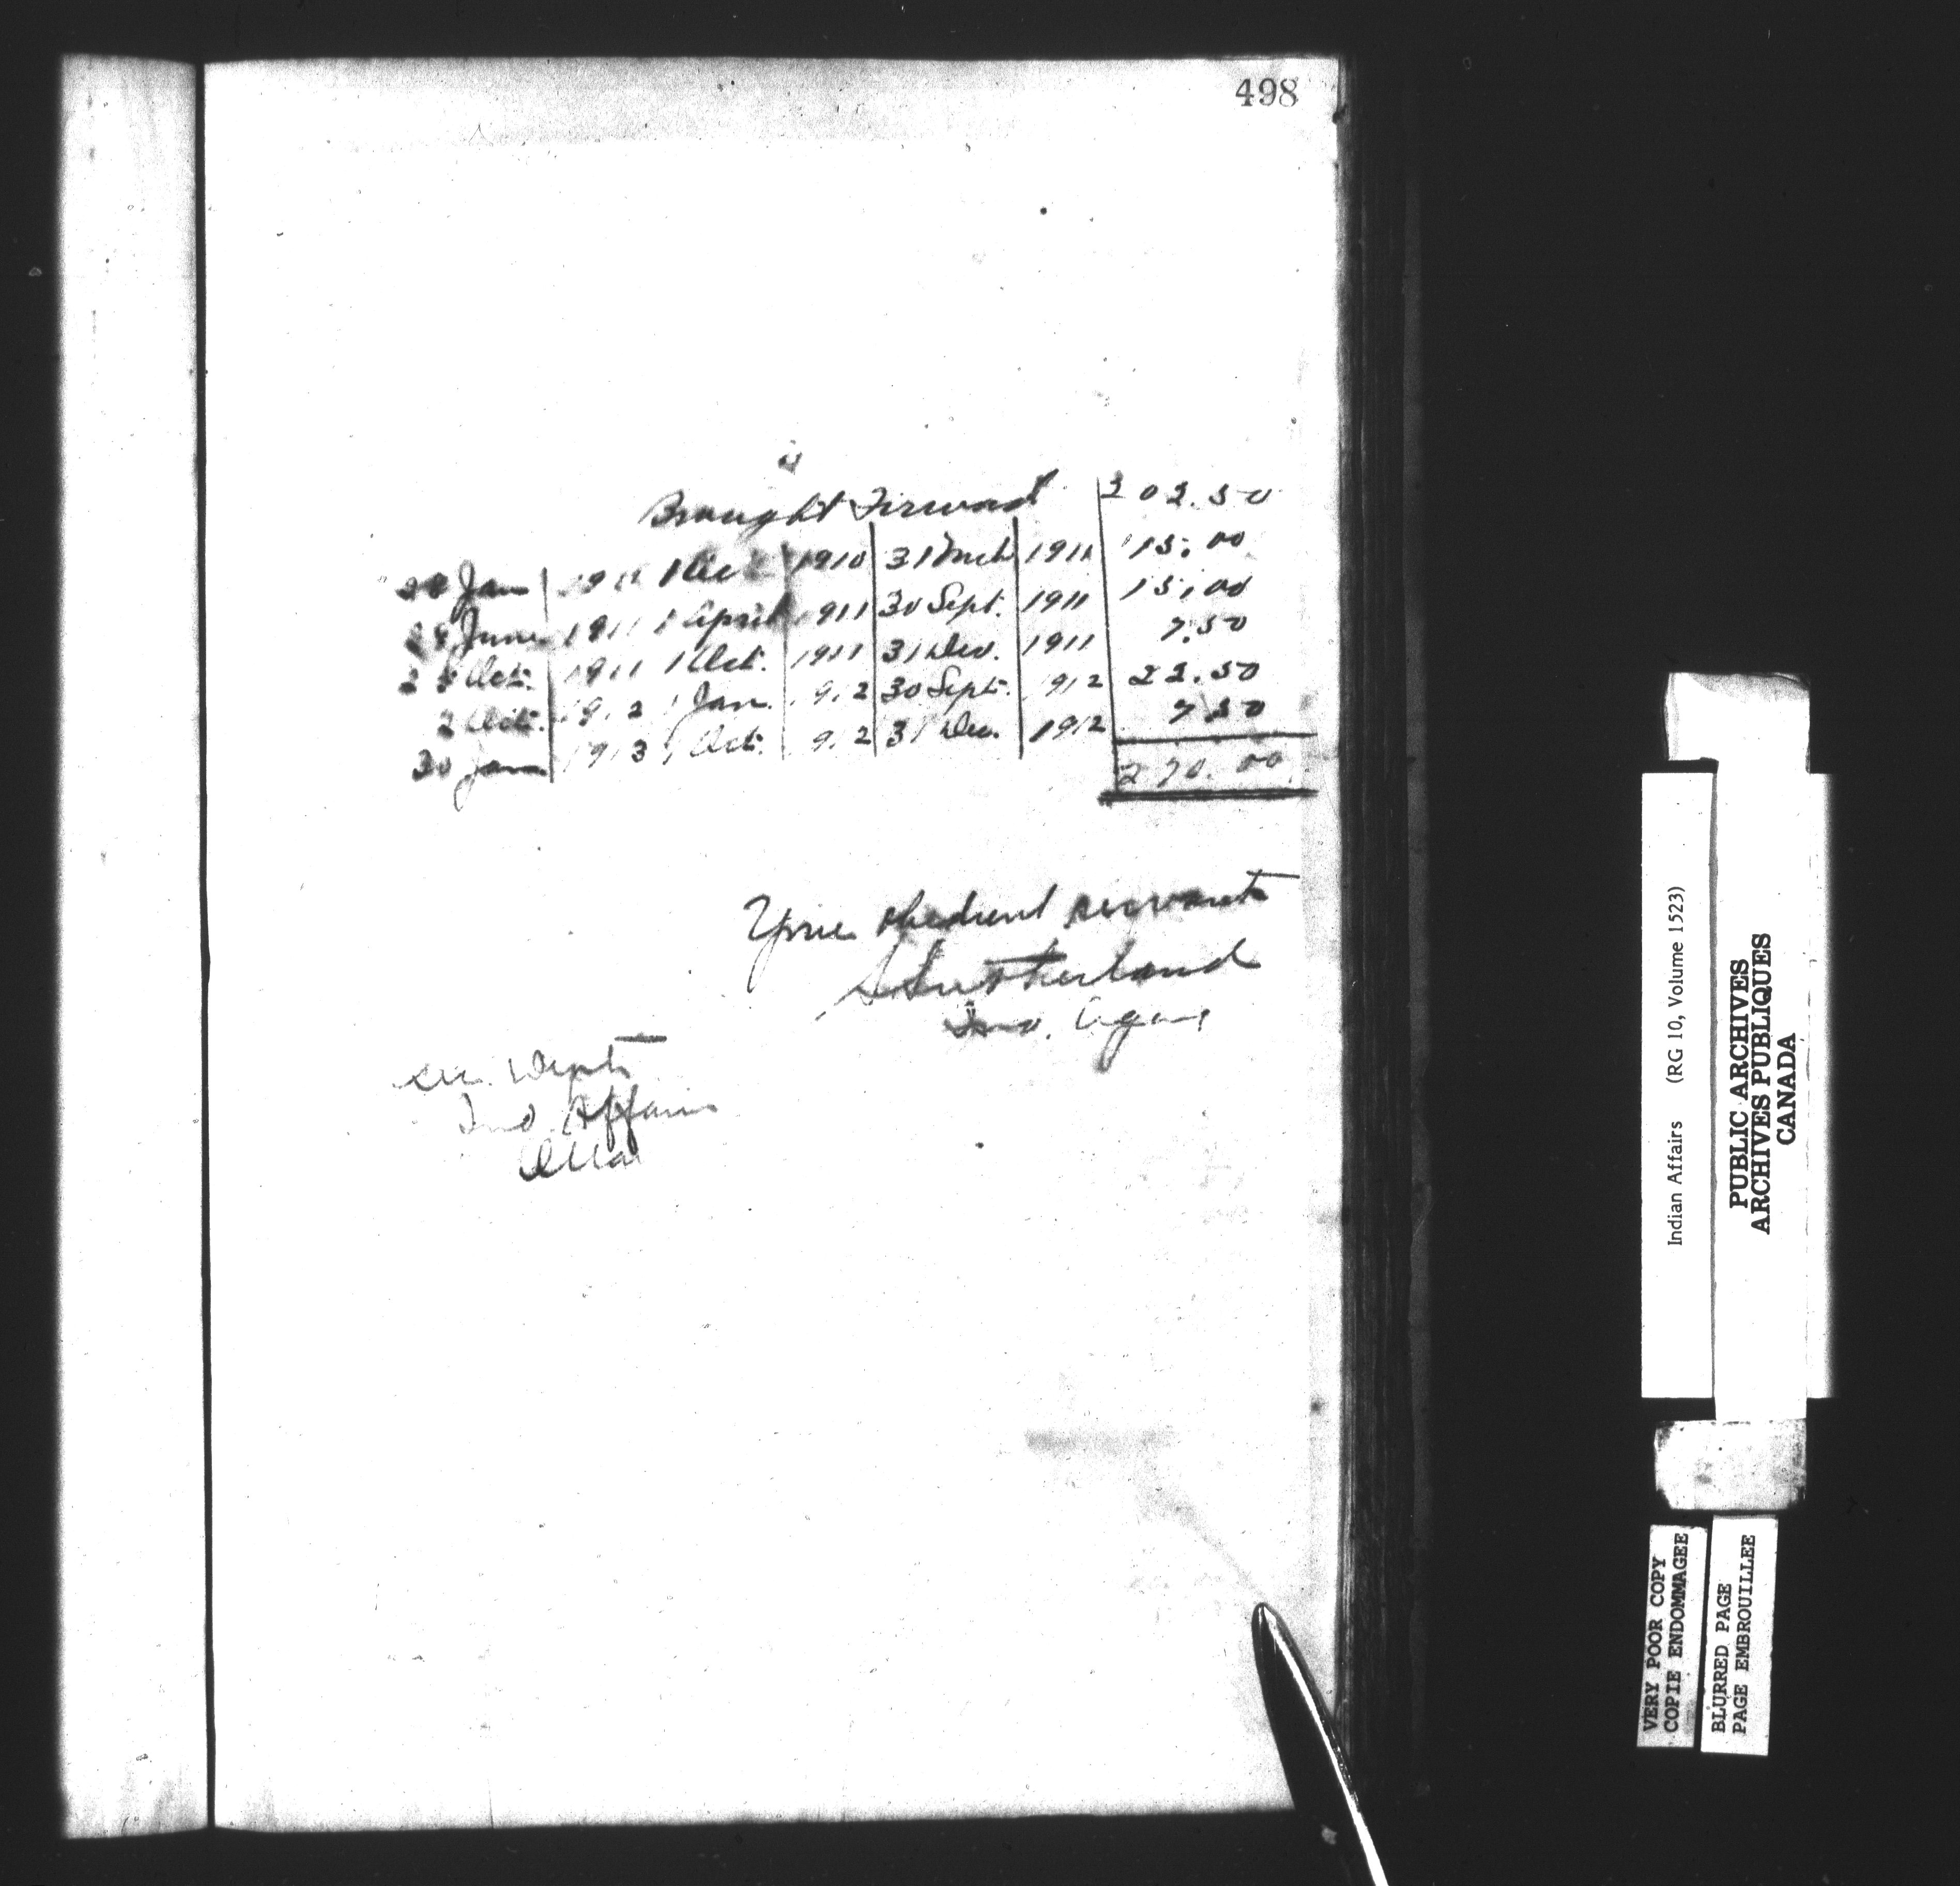 498
Brought Forward 202.50
28 Jan 1911 1 Oct 1910 31 Mch 1911 15.00
28 June 1911 1 April 1911 30 Sept. 1911 15.00
28 Oct. 1911 1 Oct. 1911 31 Dec. 1911 7.50
2 Oct. 1912 1 Jan. 1912 30 Sept. 1912 22.50
30 Jan. 1913 1 Oct. 1912 31 Dec. 1912 7.50
270.00
Your obedient servant
Sutherland
Ind. Agent
Sec. Dept
Ind. Affairs
Ottawa
Indian Affairs (RG 10, Volume 1523)
PUBLIC ARCHIVES
ARCHIVES PUBLIQUES
CANADA
VERY POOR COPY
COPIE ENDOMMAGEE
BLURRED PAGE
PAGE EMBROUILLEE